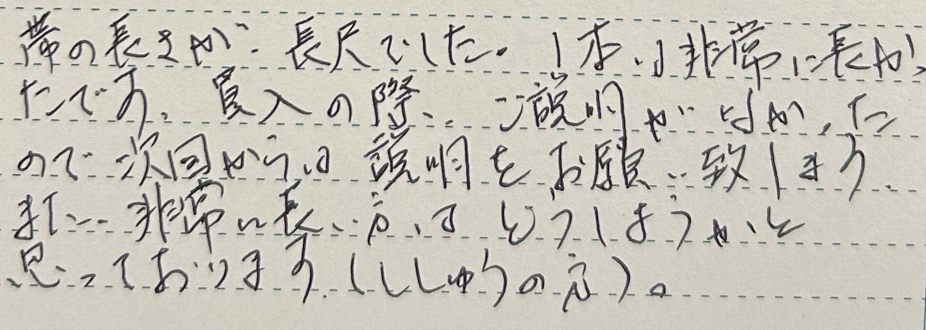 帯の長さが、長尺でした。1本は非常に長かっ
たです。買入の際、ご説明がなかった
ので次回からは説明をお願い致します。
また、非常に長い方はどうしようかと
思っております(ししゅうの方)。